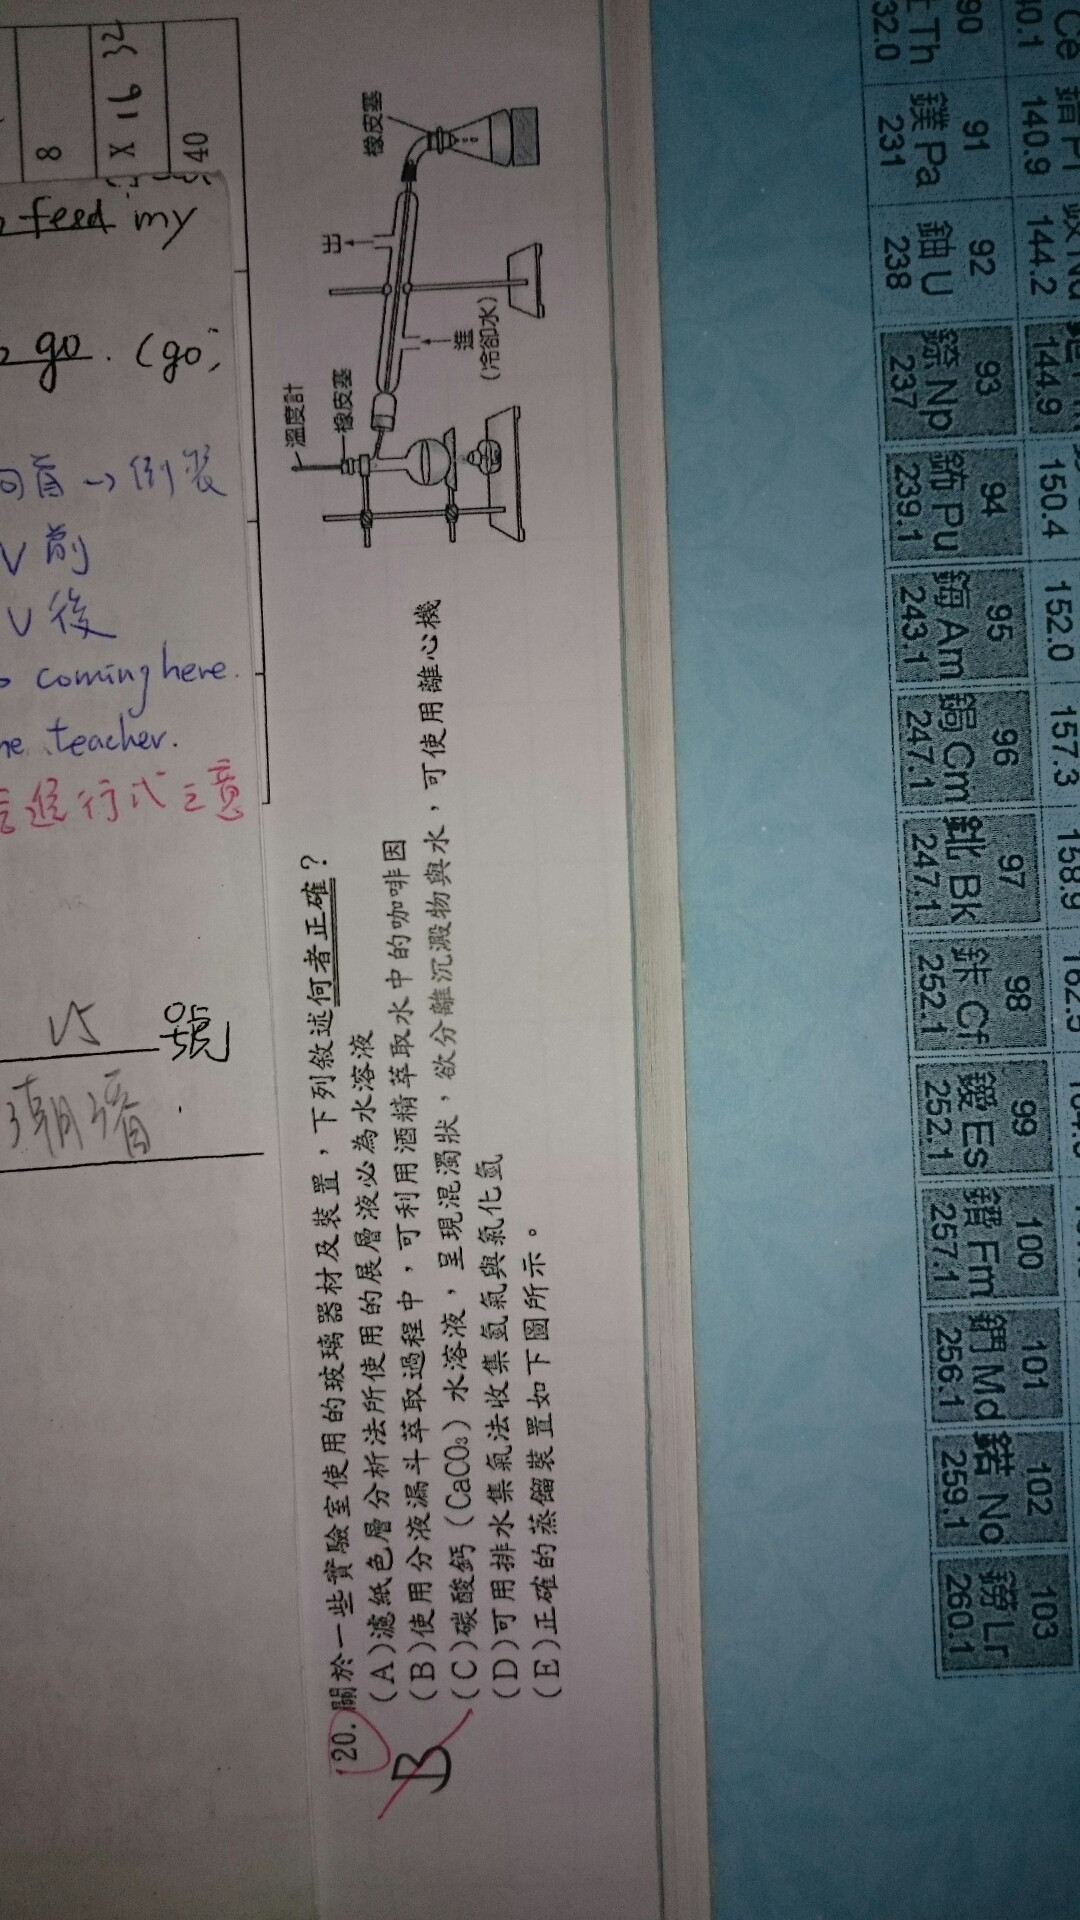 20.關於一些實驗室使用的玻璃器材及裝置，下列敘述何者正確？
(A)濾紙色層分析法所使用的展層液必為水溶液
(B)使用分液漏斗萃取過程中，可利用酒精萃取水中的咖啡因
(C)碳酸鈣（CaCO₃）水溶液，呈現混濁狀，欲分離沉澱物與水，可使用離心機
(D)可用排水集氣法收集氫氣與氯化氫
(E)正確的蒸餾裝置如下圖所示。
B
溫度計
橡皮塞
出
進
(冷卻水)
橡皮塞
8
X 16 32
40
feed my
go. (go,
V前
V後
coming here.
teacher.
進行式
號
90
Th
32.0
91
鏷 Pa
231
92
鈾 U
238
93
錼 Np
237
94
鈽 Pu
239.1
95
鋂 Am
243.1
96
鋦 Cm
247.1
97
鉳 Bk
247.1
98
鉲 Cf
252.1
99
鑀 Es
252.1
100
鐨 Fm
257.1
101
鍆 Md
256.1
102
鍩 No
259.1
103
鐒 Lr
260.1
Ce
40.1
140.9
144.2
144.9
150.4
152.0
157.3
158.9
162.5